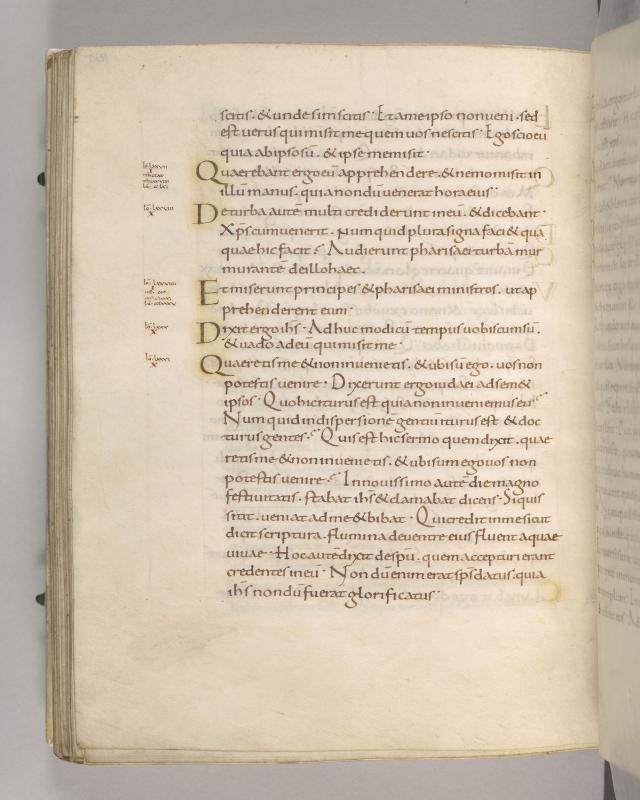 scitis. & unde sim scitis· Et a me ipso non veni. sed
est verus qui misit me quem vos nescitis· Ego scio eū
quia ab ipso sū. & ipse me misit·
Quaerebant ergo eū apprehendere. & nemo misit in
illū manus. quia nondū venerat hora eius·
De turba autē multi crediderunt in eū. & dicebant·
Xp̄s cum venerit. numquid plura signa faci& quā
quae hic facit· Audierunt pharisaei turbām mur
murantē de illo haec.
Et miserunt principes & pharisaei ministros. ut ap
prehenderent eum·
Dixit ergo ih̄s· Adhuc modicū tempus vobiscum sū.
& vado ad eū qui misit me·
Quaeretis me & non invenietis. & ubi sū ego. vos non
potestis venire· Dixerunt ergo iudaei ad sem&
ipsos· Quo hic iturus est quia non inveniemus eū·
Numquid in dispersionē gentiū iturus est & doc
turus gentes· Quis est hic sermo quem dixit. quae
retis me & non invenietis. & ubi sum ego vos non
potestis venire· In novissimo autē die magno
festivitatis. stabat ih̄s & clamabat dicens· Si quis
sitit. veniat ad me & bibat· Qui credit in me sicut
dicit scriptura. flumina de ventre eius fluent aquae
vivae· Hoc autē dixit de sp̄u. quem accepturi erant
credentes in eū· Non dū enim erat sp̄s datus. quia
ih̄s nondū fuerat glorificatus·